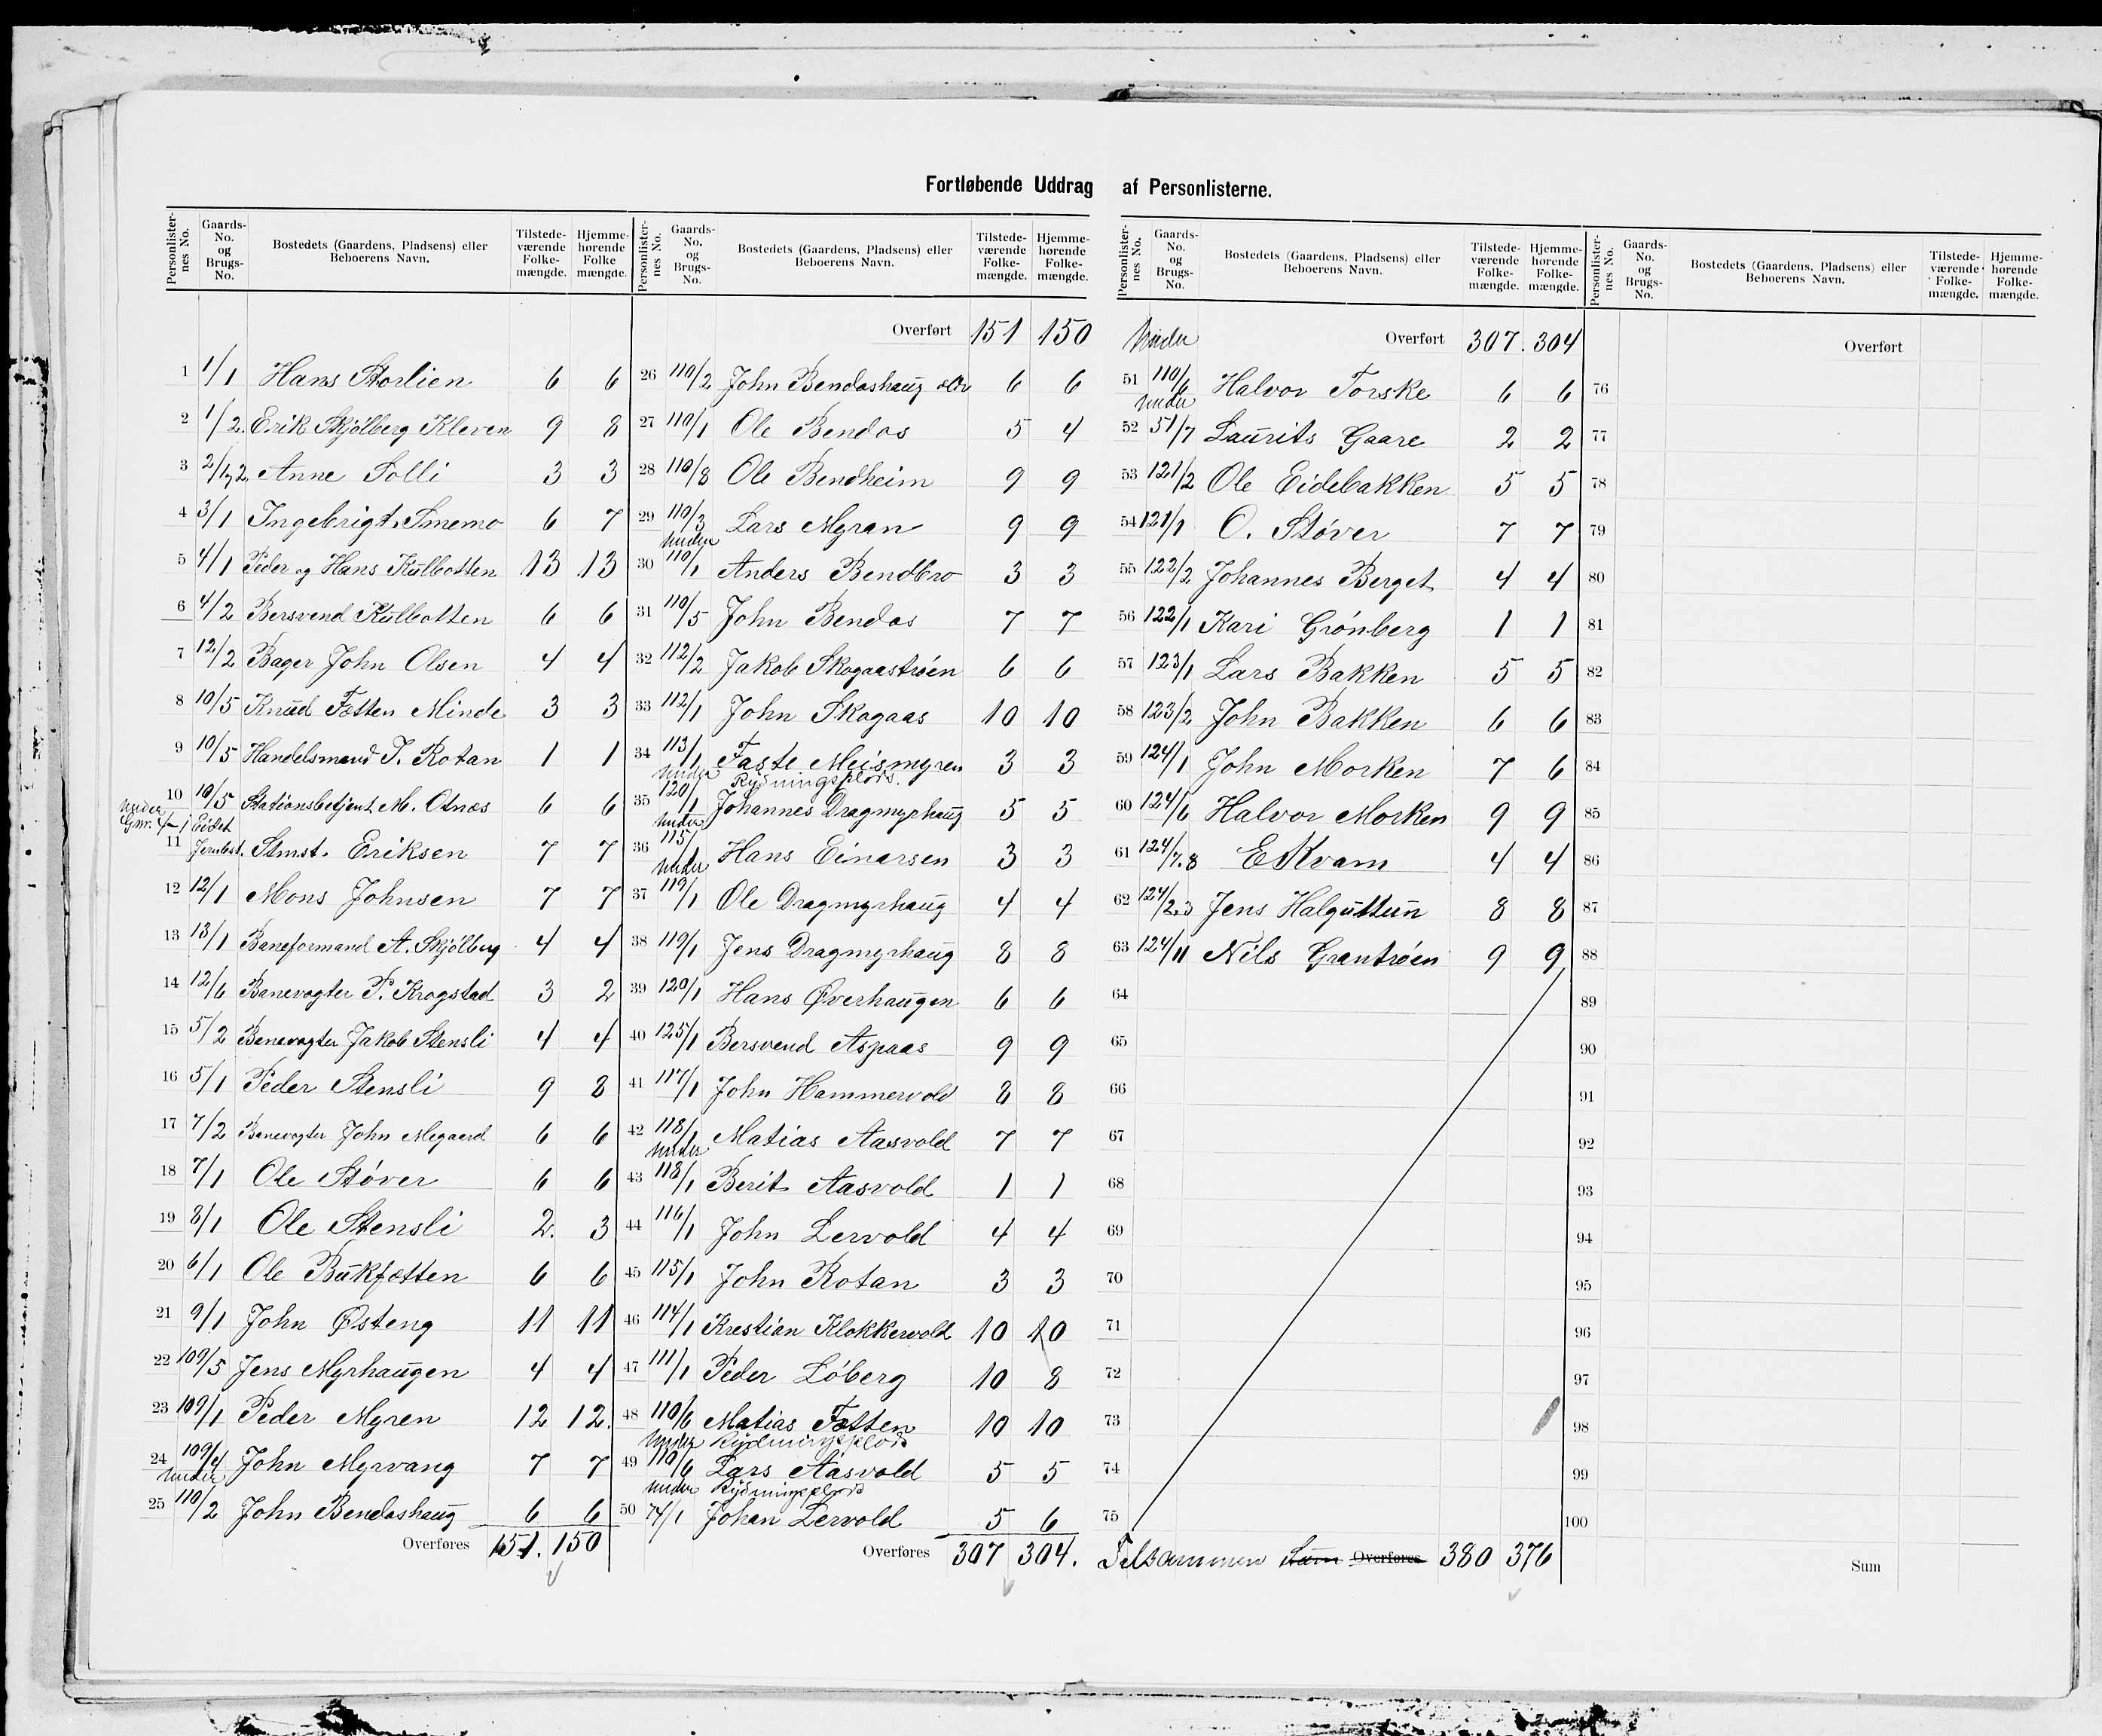 Fortløbende Uddrag af Personlisterne.
Personlisternes No. Gaards-No. og Brugs-No. Bostedets (Gaardens, Pladsens) eller Beboerens Navn. Tilstedeværende Folkemængde. Hjemmehørende Folkemængde.
1 1/1 Hans Storlien 6 6
2 1/2. Erik Skjølberg Kleven 9 8
3 2/1,2, Anne Solli 3 3
4 3/1 Ingebrigt Smemo 6 7
5 4/1 Peder og Hans Kulbotten 13 13
6 4/2 Bersvend Kulbotten 6 6
7 12/2 Bager John Olsen 4 4
8 10/5 Knud Fætten Minde 3 3
9 10/5 Handelsmand J. Rotan 1 1
10 10/5 Stationsbetjent M. Otnes 6 6
under Gnr. 4/1 Eidet
11 Jernbst. Stmst. Eriksen 7 7
12 12/1 Mons Johnsen 7 7
13 13/1 Baneformand A. Skjølberg 4 4
14 12/6 Banevogter P. Krogstad 3 2
15 5/2 Banevogter Jakob Stensli 4 4
16 5/1 Peder Stensli 9 8
17 7/2 Banevogter John Megaard 6 6
18 7/1 Ole Støver 6 6
19 8/1 Ole Stensli 2. 3
20 6/1 Ole Bukfætten 6 6
21 9/1 John Østeng 11 11
22 109/5 Jens Myrhaugen 4 4
23 109/1 Peder Myren 12 12.
24 109/4 John Myrvang 7 7
under
25 110/2 John Bendashaug 6 6
Overføres 151. 150
Personlisternes No. Gaards-No. og Brugs-No. Bostedets (Gaardens, Pladsens) eller Beboerens Navn. Tilstedeværende Folkemængde. Hjemmehørende Folkemængde.
Overført 151 150
26 110/2 John Bendashaug 6 6
27 110/1 Ole Bendos 5 4
28 110/8 Ole Bendheim 9 9
29 110/3 Lars Myran 9 9
under
30 110/1 Anders Bendbro 3 3
31 110/5 John Bendos 7 7
32 112/2 Jakob Skogaastrøen 6 6
33 112/1 John Skogaas 10 10
34 113/1 Faste Meismyren 3 3
under Rydningsplods.
35 120/1 Johannes Dragmyrhaug 5 5
under
36 115/1 Hans Einarsen 3 3
under
37 119/1 Ole Dragmyrhaug 4 4
38 119/1 Jens Dragmyrhaug 8 8
39 120/1 Hans Øverhaugen 6 6
40 125/1 Bersvend Aspaas 9 9
41 117/1 John Hammervold 8 8
42 118/1 Matias Aasvold 7 7
under
43 118/1 Berit Aasvold 1 1
44 116/1 John Lervold 4 4
45 115/1 John Rotan 3 3
46 114/1 Krestian Klokkervold 10 10
47 111/1 Peder Løberg 10 8
48 110/6 Matias Fætten 10 10
under Rydningsplods
49 110/6 Lars Aasvold 5 5
under Rydningsplods
50 74/1 Johan Lervold 5 6
Overføres 307 304.
Personlisternes No. Gaards-No. og Brugs-No. Bostedets (Gaardens, Pladsens) eller Beboerens Navn. Tilstedeværende Folkemængde. Hjemmehørende Folkemængde.
under Overført 307. 304
51 110/6 Halvor Torske 6 6
under
52 51/7 Laurits Gaare 2 2
53 121/2 Ole Eidebakken 5 5
54 121/1 O. Støver 7 7
55 122/2 Johannes Berget 4 4
56 122/1 Kari Grønberg 1 1
57 123/1 Lars Bakken 5 5
58 123/2 John Bakken 6 6
59 124/1 John Morken 7 6
60 124/6 Halvor Morken 9 9
61 124/7.8 E Kvam 4 4
62 124/2,3 Jens Halguttun 8 8
63 124/11 Nils Grantrøen 9 9
64
65
66
67
68
69
70
71
72
73
74
75
Tilsammen Sum Overføres 380 376
Personlisternes No. Gaards-No. og Brugs-No. Bostedets (Gaardens, Pladsens) eller Beboerens Navn. Tilstedeværende Folkemængde. Hjemmehørende Folkemængde.
Overført
76
77
78
79
80
81
82
83
84
85
86
87
88
89
90
91
92
93
94
95
96
97
98
99
100
Sum